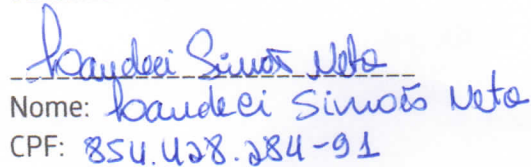 Laudeci Simões Neto
Nome: Laudeci Simões Neto
CPF: 854.428.284-91